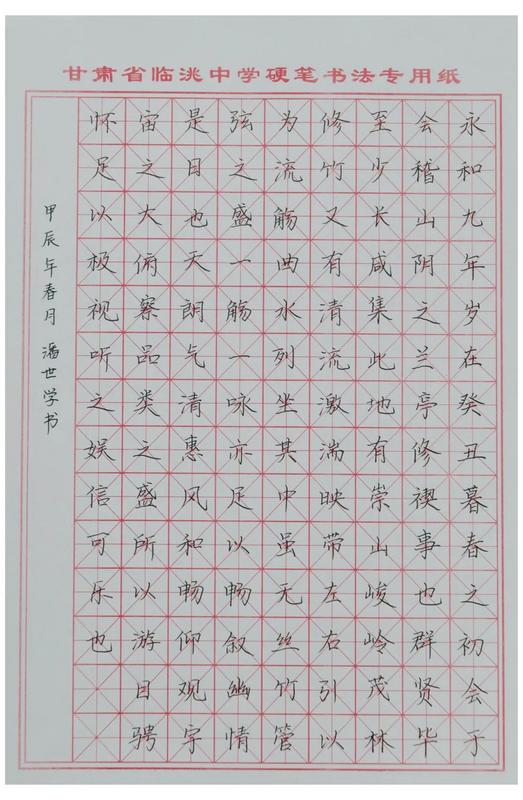 甘肃省临洮中学硬笔书法专用纸
永和九年岁在癸丑暮春之初会于
会稽山阴之兰亭修禊事也群贤毕
至少长咸集此地有崇山峻岭茂林
修竹又有清流激湍映带左右引以
为流觞曲水列坐其中虽无丝竹管
弦之盛一觞一咏亦足以畅叙幽情
是日也天朗气清惠风和畅仰观宇
宙之大俯察品类之盛所以游目骋
怀足以极视听之娱信可乐也
甲辰年春月潘世学书